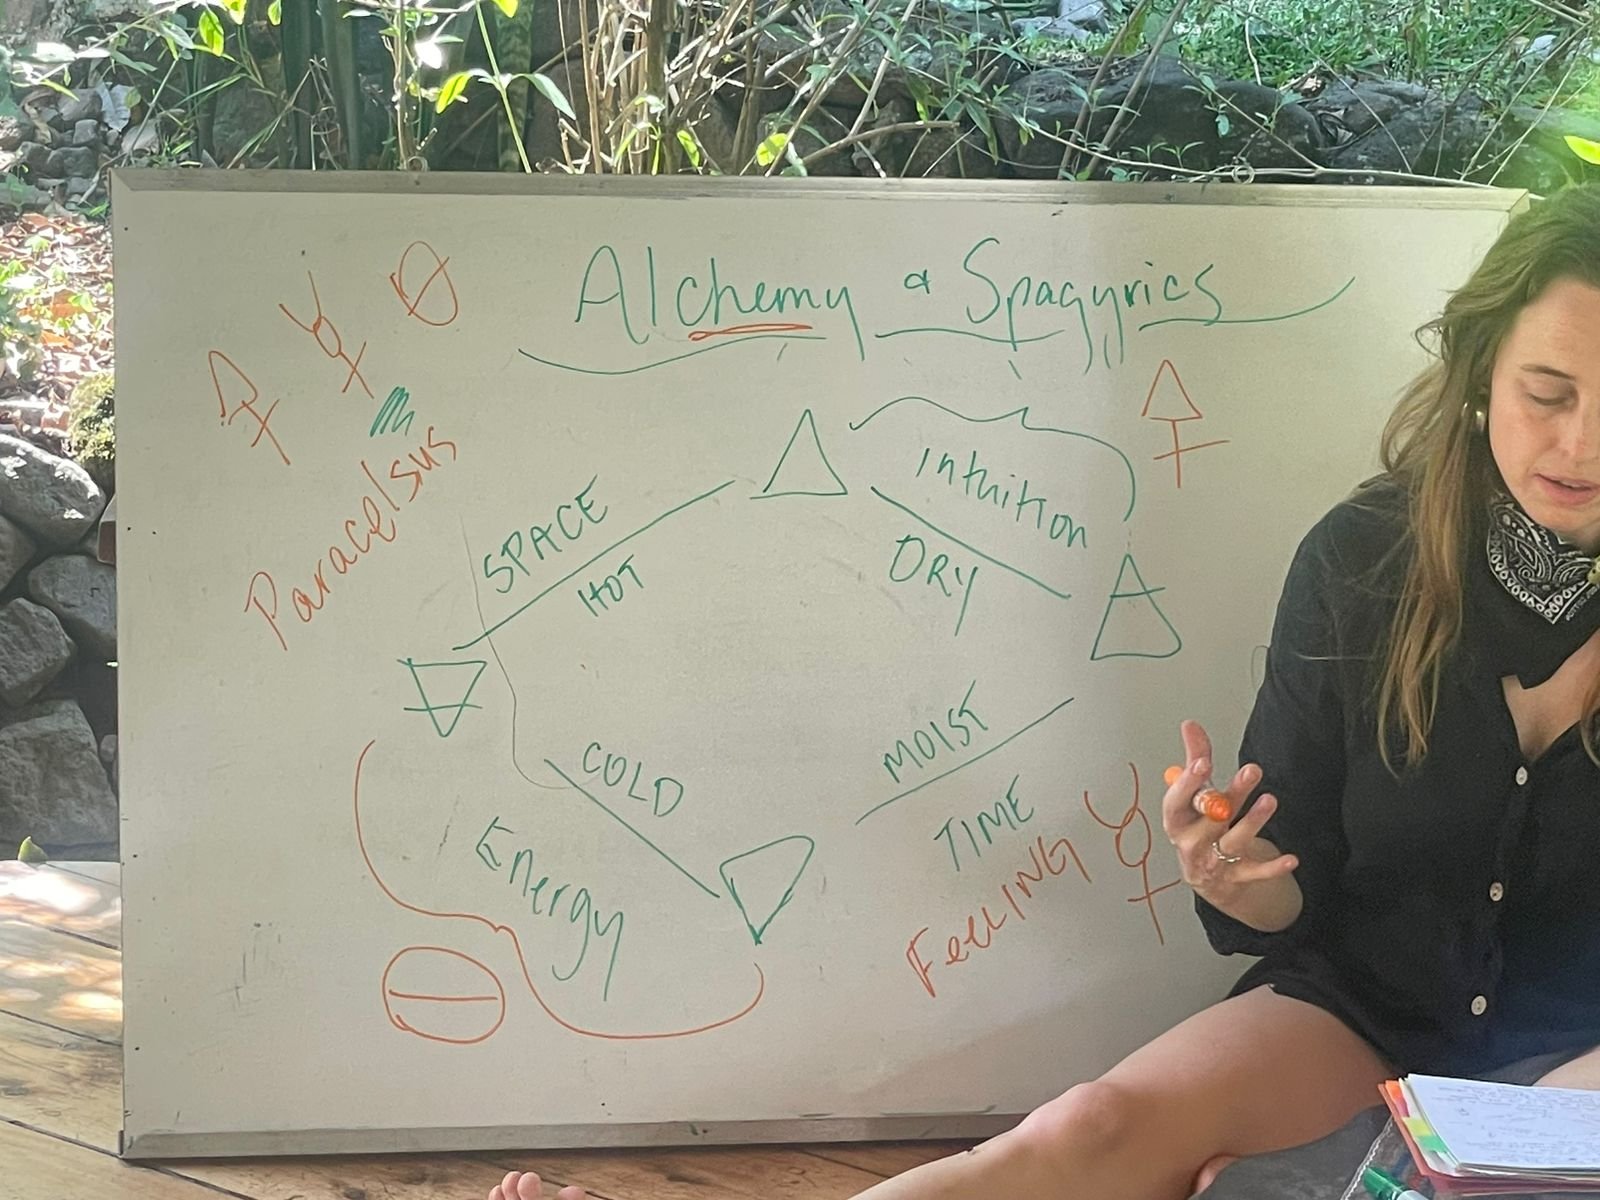 Alchemy & Spagyrics
Paracelsus
SPACE
HOT
Intuition
DRY
COLD
Energy
MOIST
TIME
FEELING